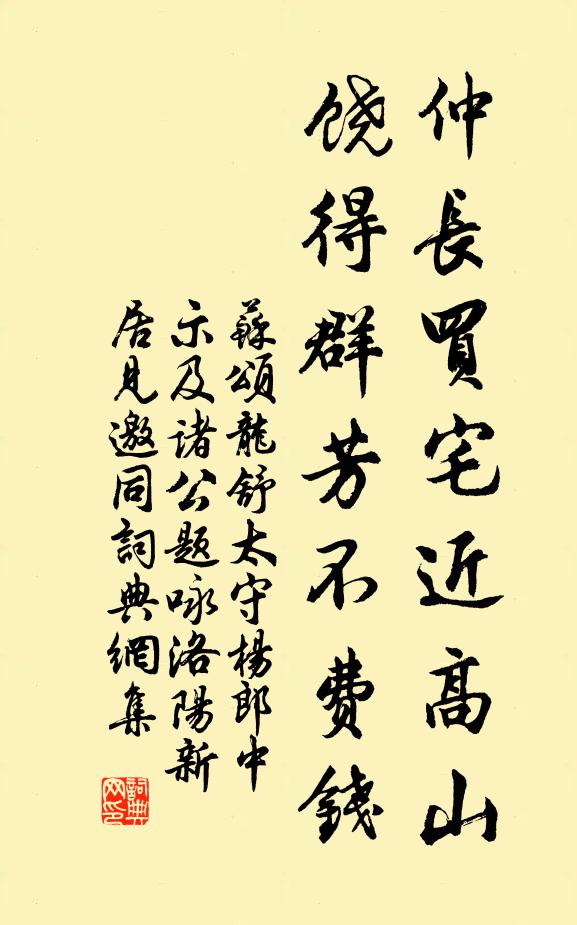 仲長買宅近高山
饒得群芳不費錢
蘇頌龍舒太守楊郎中
示及諸公題咏洛陽新
居見邀同詞典網集
詞典
网印